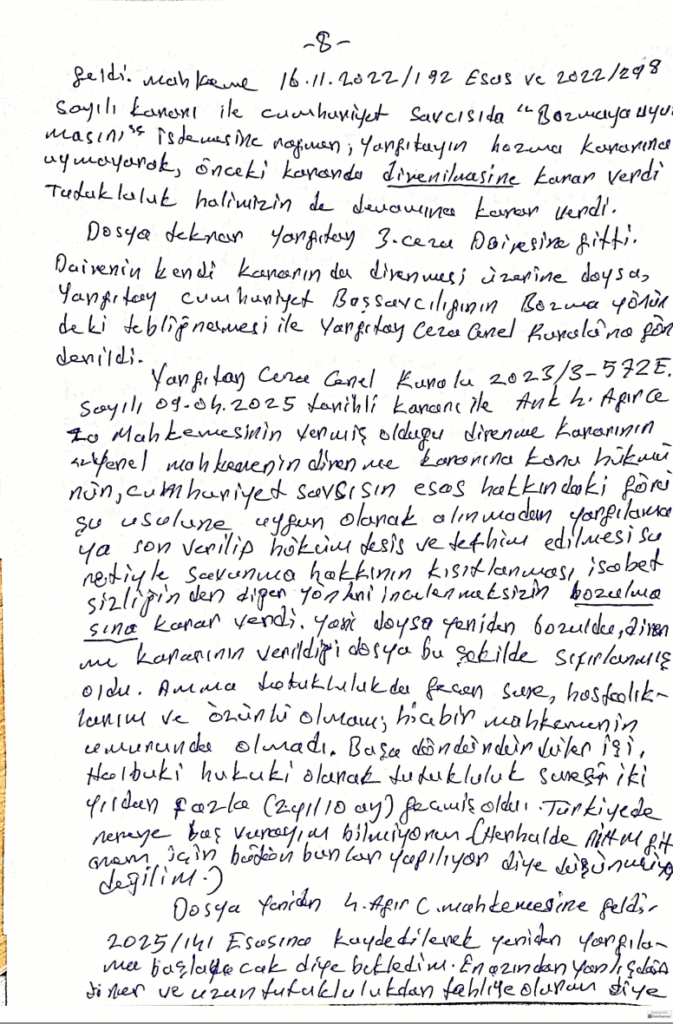 -8-
geldi. Mahkeme 16.11.2022/192 Esas ve 2022/298
sayılı kararı ile cumhuriyet savcısıda "Bozmaya uyul
masını" istemesine rağmen, Yargıtayın bozma kararına
uymayarak, önceki kararda direnilmesine karar verdi
Tutukluluk halimizin de devamına karar verdi.
Dosya tekrar Yargıtay 3. ceza Dairesine gitti.
Dairenin kendi kararında direnmesi üzerine dosya,
Yargıtay cumhuriyet Başsavcılığının Bozma yönün
deki tebliğnamesi ile Yargıtay Ceza Genel Kuruluna gön
derildi.
Yargıtay Ceza Genel Kurulu 2023/3-572 E.
Sayılı 09.04.2025 tarihli kararı ile Ank 4. Ağır Ce
za Mahkemesinin vermiş olduğu direnme kararının
yerel mahkemenin direnme kararına konu hükmü
nün, cumhuriyet savcısın esas hakkındaki görü
şü usulüne uygun olarak alınmadan yargılama
ya son verilip hüküm tesis ve tefhim edilmesi su
retiyle savunma hakkının kısıtlanması, isabet
sizliğinden diğer yönleri incelenmeksizin bozulma
sına karar verdi. Yani dosya yeniden bozuldu, diren
me kararının verildiği dosya bu şekilde sıfırlanmış
oldu. Amma tutuklulukda geçen süre, hastalık-
larım ve özürlü olmam, hiçbir mahkemenin
umurunda olmadı. Başa döndürdüler işi,
Halbuki hukuki olarak tutukluluk süresi iki
yıldan fazla (2 yıl 10 ay) geçmiş oldu. Türkiyede
nereye baş vurayım bilmiyorum. (Herhalde AİHM git
mem için bütün bunlar yapılıyor diye düşünmüyor
değilim.)
Dosya Yeniden 4. Ağır C. mahkemesine geldi.
2025/141 Esasına kaydedilerek yeniden yargıla-
ma başlayacak diye bekledim. En azından yanlışdan
döner ve uzun tutuklulukdan tahliye olurum diye